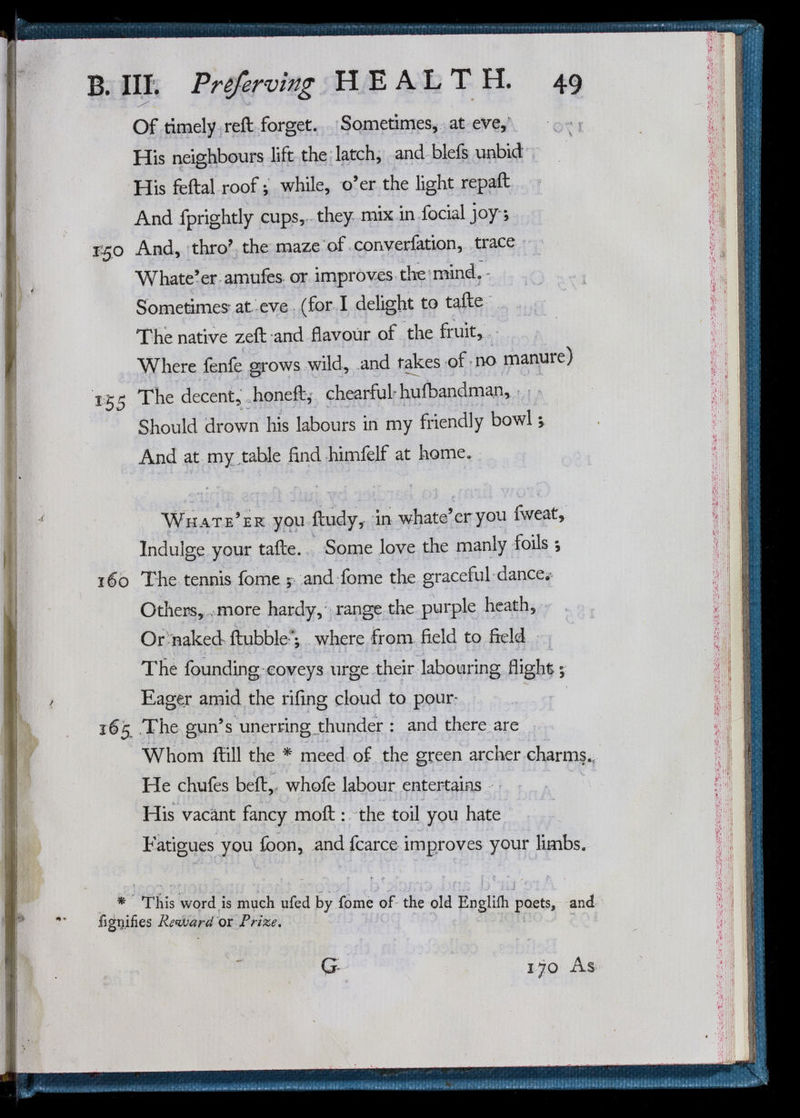 B. III. Preſerving HEALTH. 49
Of timely reſt forget. Sometimes, at eve,
His neighbours lift the latch, and bleſs unbid
His feſtal roof; while, o'er the light repaſt
And ſprightly cups, they mix in ſocial joy;
150 And, thro' the maze of converſation, trace
Whate'er amuſes or improves the mind.
Sometimes at eve (for I delight to taſte
The native zeſt and flavour of the fruit,
Where ſenſe grows wild, and takes of no manure)
155 The decent, honeſt, chearful huſbandman,
Should drown his labours in my friendly bowl;
And at my table find himſelf at home.
WHATE'ER you ſtudy, in whate'er you ſweat,
Indulge your taſte. Some love the manly foils;
160 The tennis ſome; and ſome the graceful dance.
Others, more hardy, range the purple heath,
Or naked ſtubble; where from field to field
The ſounding coveys urge their labouring flight;
Eager amid the riſing cloud to pour
165 The gun's unerring thunder: and there are
Whom ſtill the * meed of the green archer charms.
He chuſes beſt, whoſe labour entertains
His vacant fancy moſt: the toil you hate
Fatigues you ſoon, and ſcarce improves your limbs.
* This word is much uſed by ſome of the old Engliſh poets, and
ſignifies Reward or Prize.
G 170 As